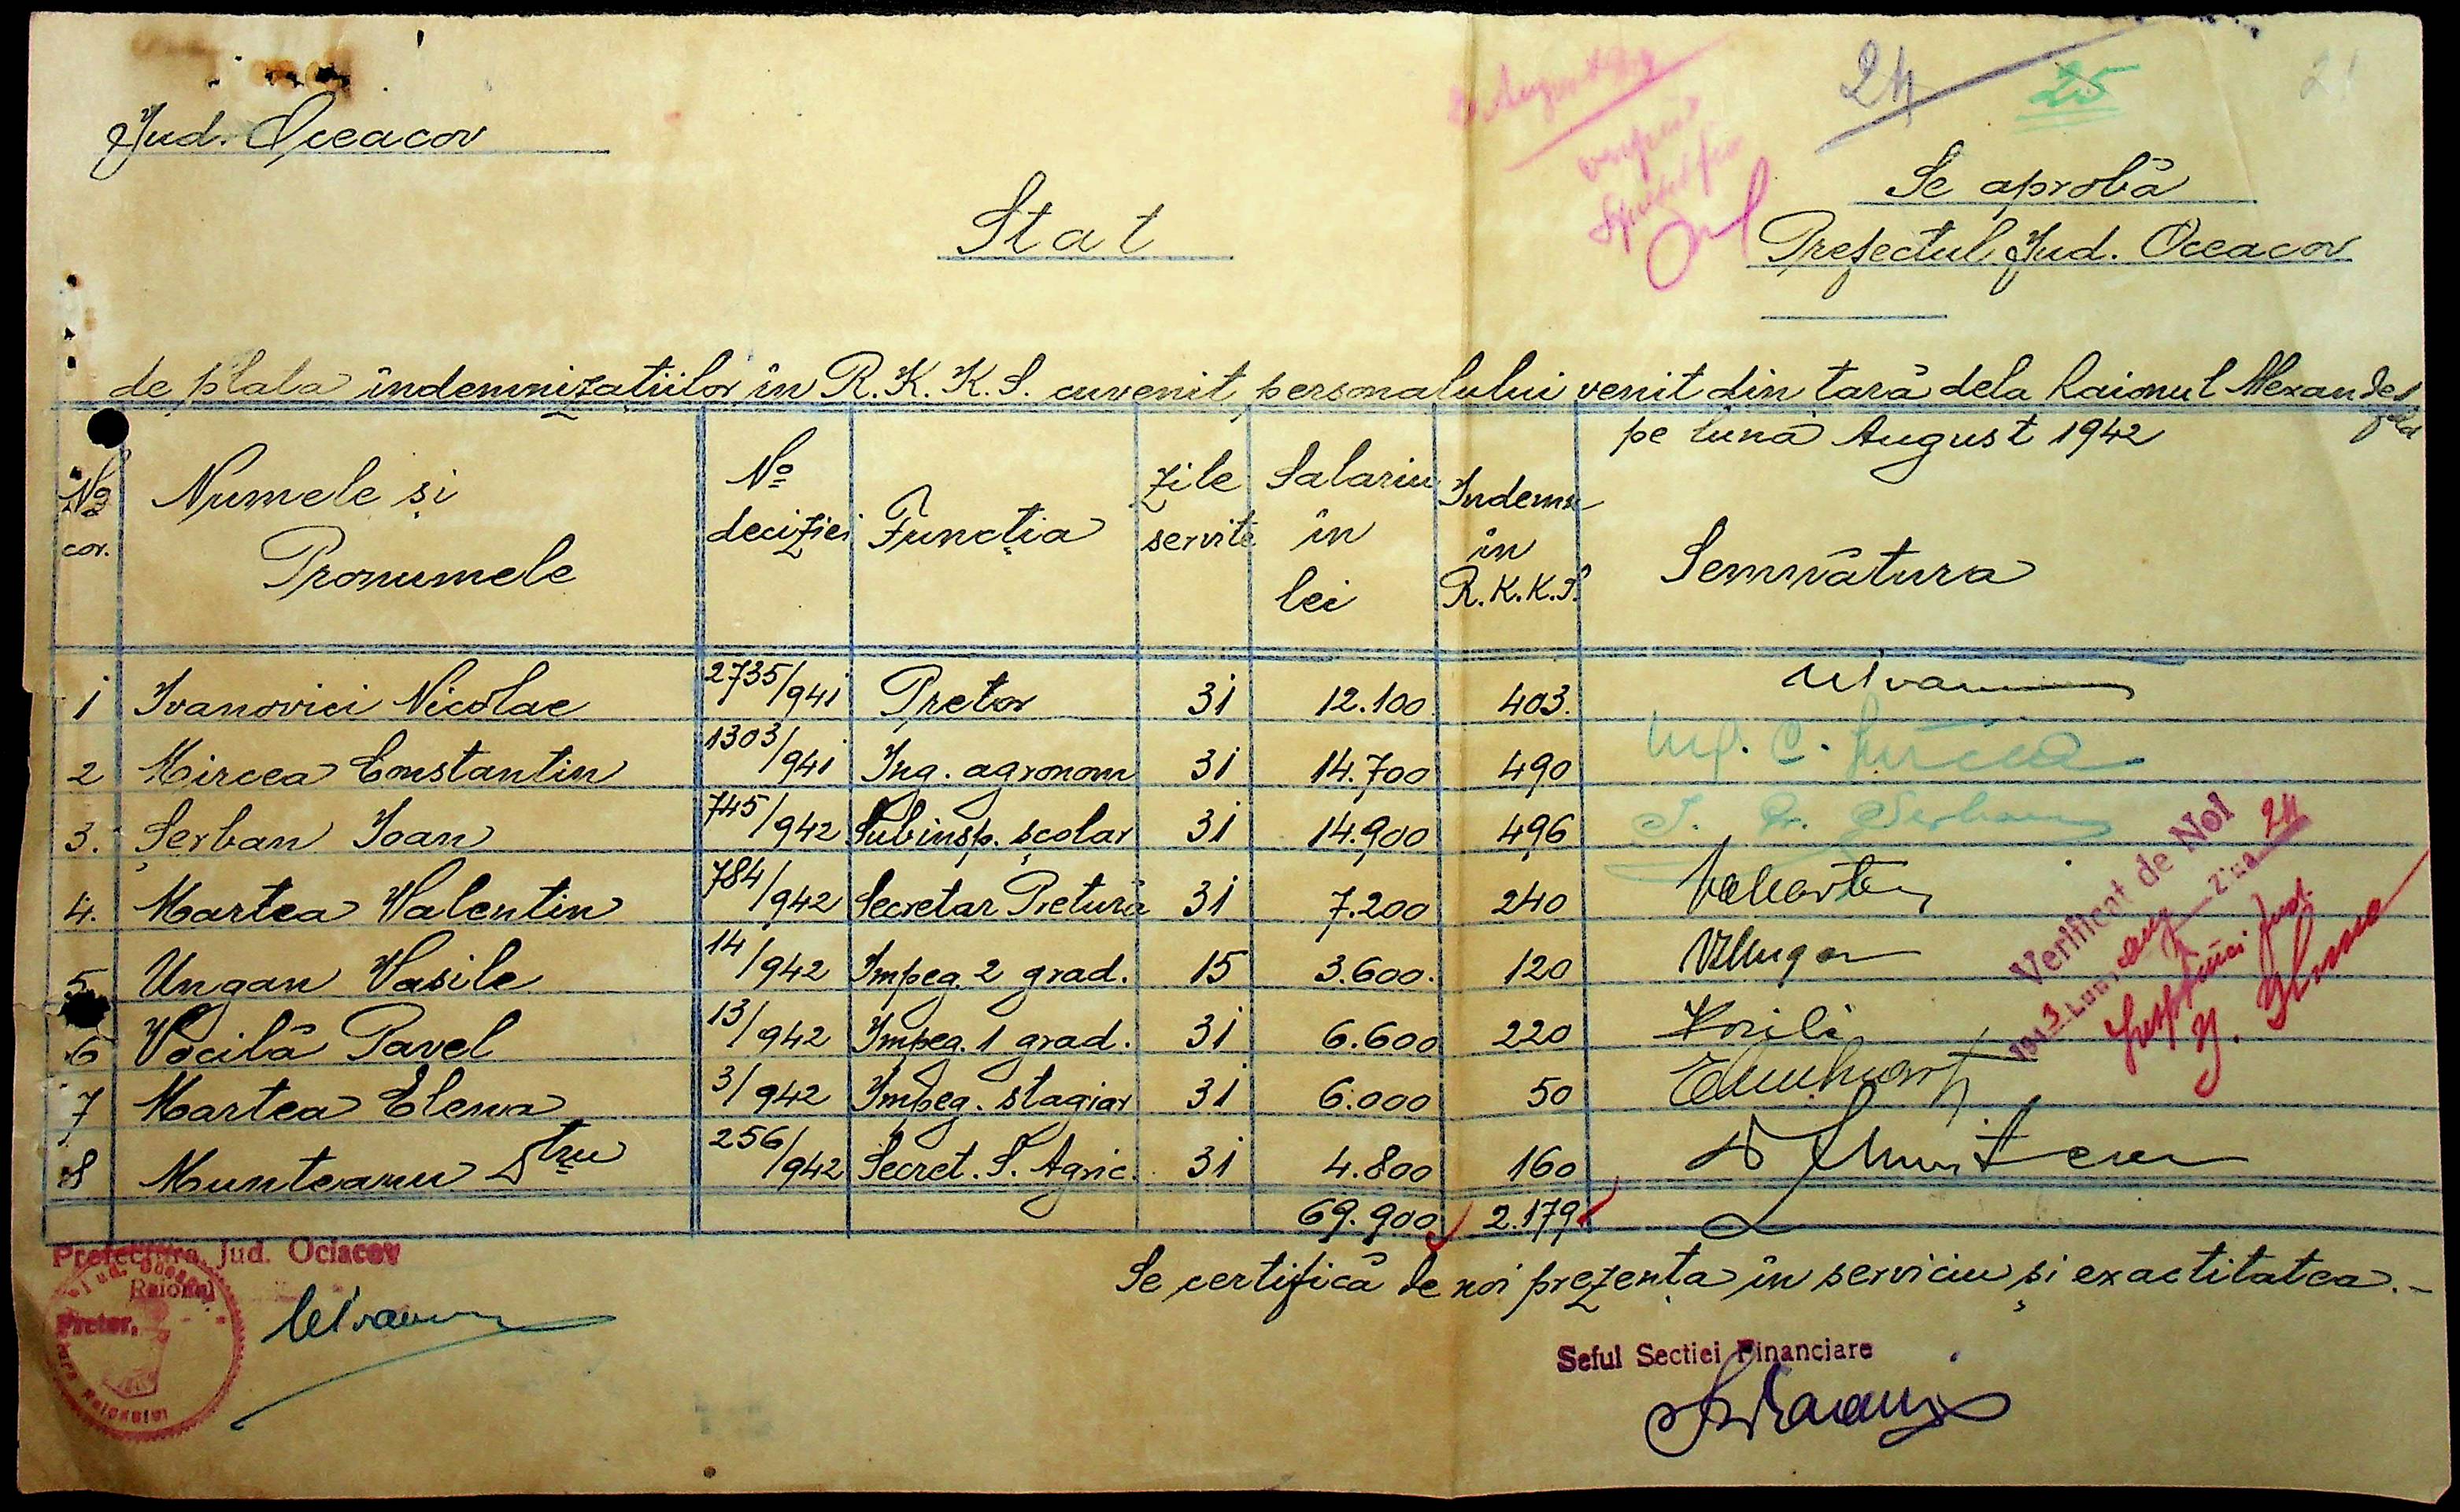 24
25
21
Jud. Oceacov
Se aprobă
Prefectul Jud. Oceacov
Stat
de plata îndemnizațiilor în R.K.K.S. cuvenit personalului venit din tară dela Raionul Alexanderfeld
pe luna August 1942
No cor. Numele și Pronumele No deciziei Funcția Zile servite Salariu în lei Indemn în R.K.K.S. Semnătura
1 Ivanovici Nicolae 2735/941 Pretor 31 12.100 403.
2 Mircea Constantin 1303/941 Ing. agronom 31 14.700 490
3. Șerban Ioan 745/942 Subinsp. școlar 31 14.900 496
4. Martea Valentin 784/942 Secretar Pretură 31 7.200 240
5 Ungan Vasile 14/942 Impeg. 2 grad. 15 3.600. 120
6 Vocilă Pavel 13/942 Impeg. 1 grad. 31 6.600 220
7 Martea Elena 3/942 Impeg. stagiar 31 6.000 50
8 Munteanu Dtru 256/942 Secret. S. Agric. 31 4.800 160
69.900 2.179
Verificat de Noi
1943 Luna aug Ziua 24
Prefectura Jud. Ociacov
Raionul
Pretor,
Se certifică de noi prezența în serviciu și exactitatea.-
Seful Sectiei Financiare